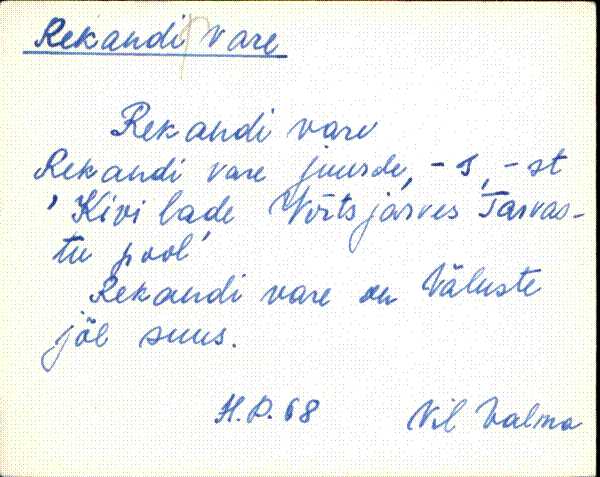 Rekandi vare
Rekandi vare
Rekandi vare juurde, -s, -st
'Kivi lade Võrtsjärves Tarvas-
tu pool'
Rekandi vare on Väluste
jõe suus.
H.P. 68 Vil Valma